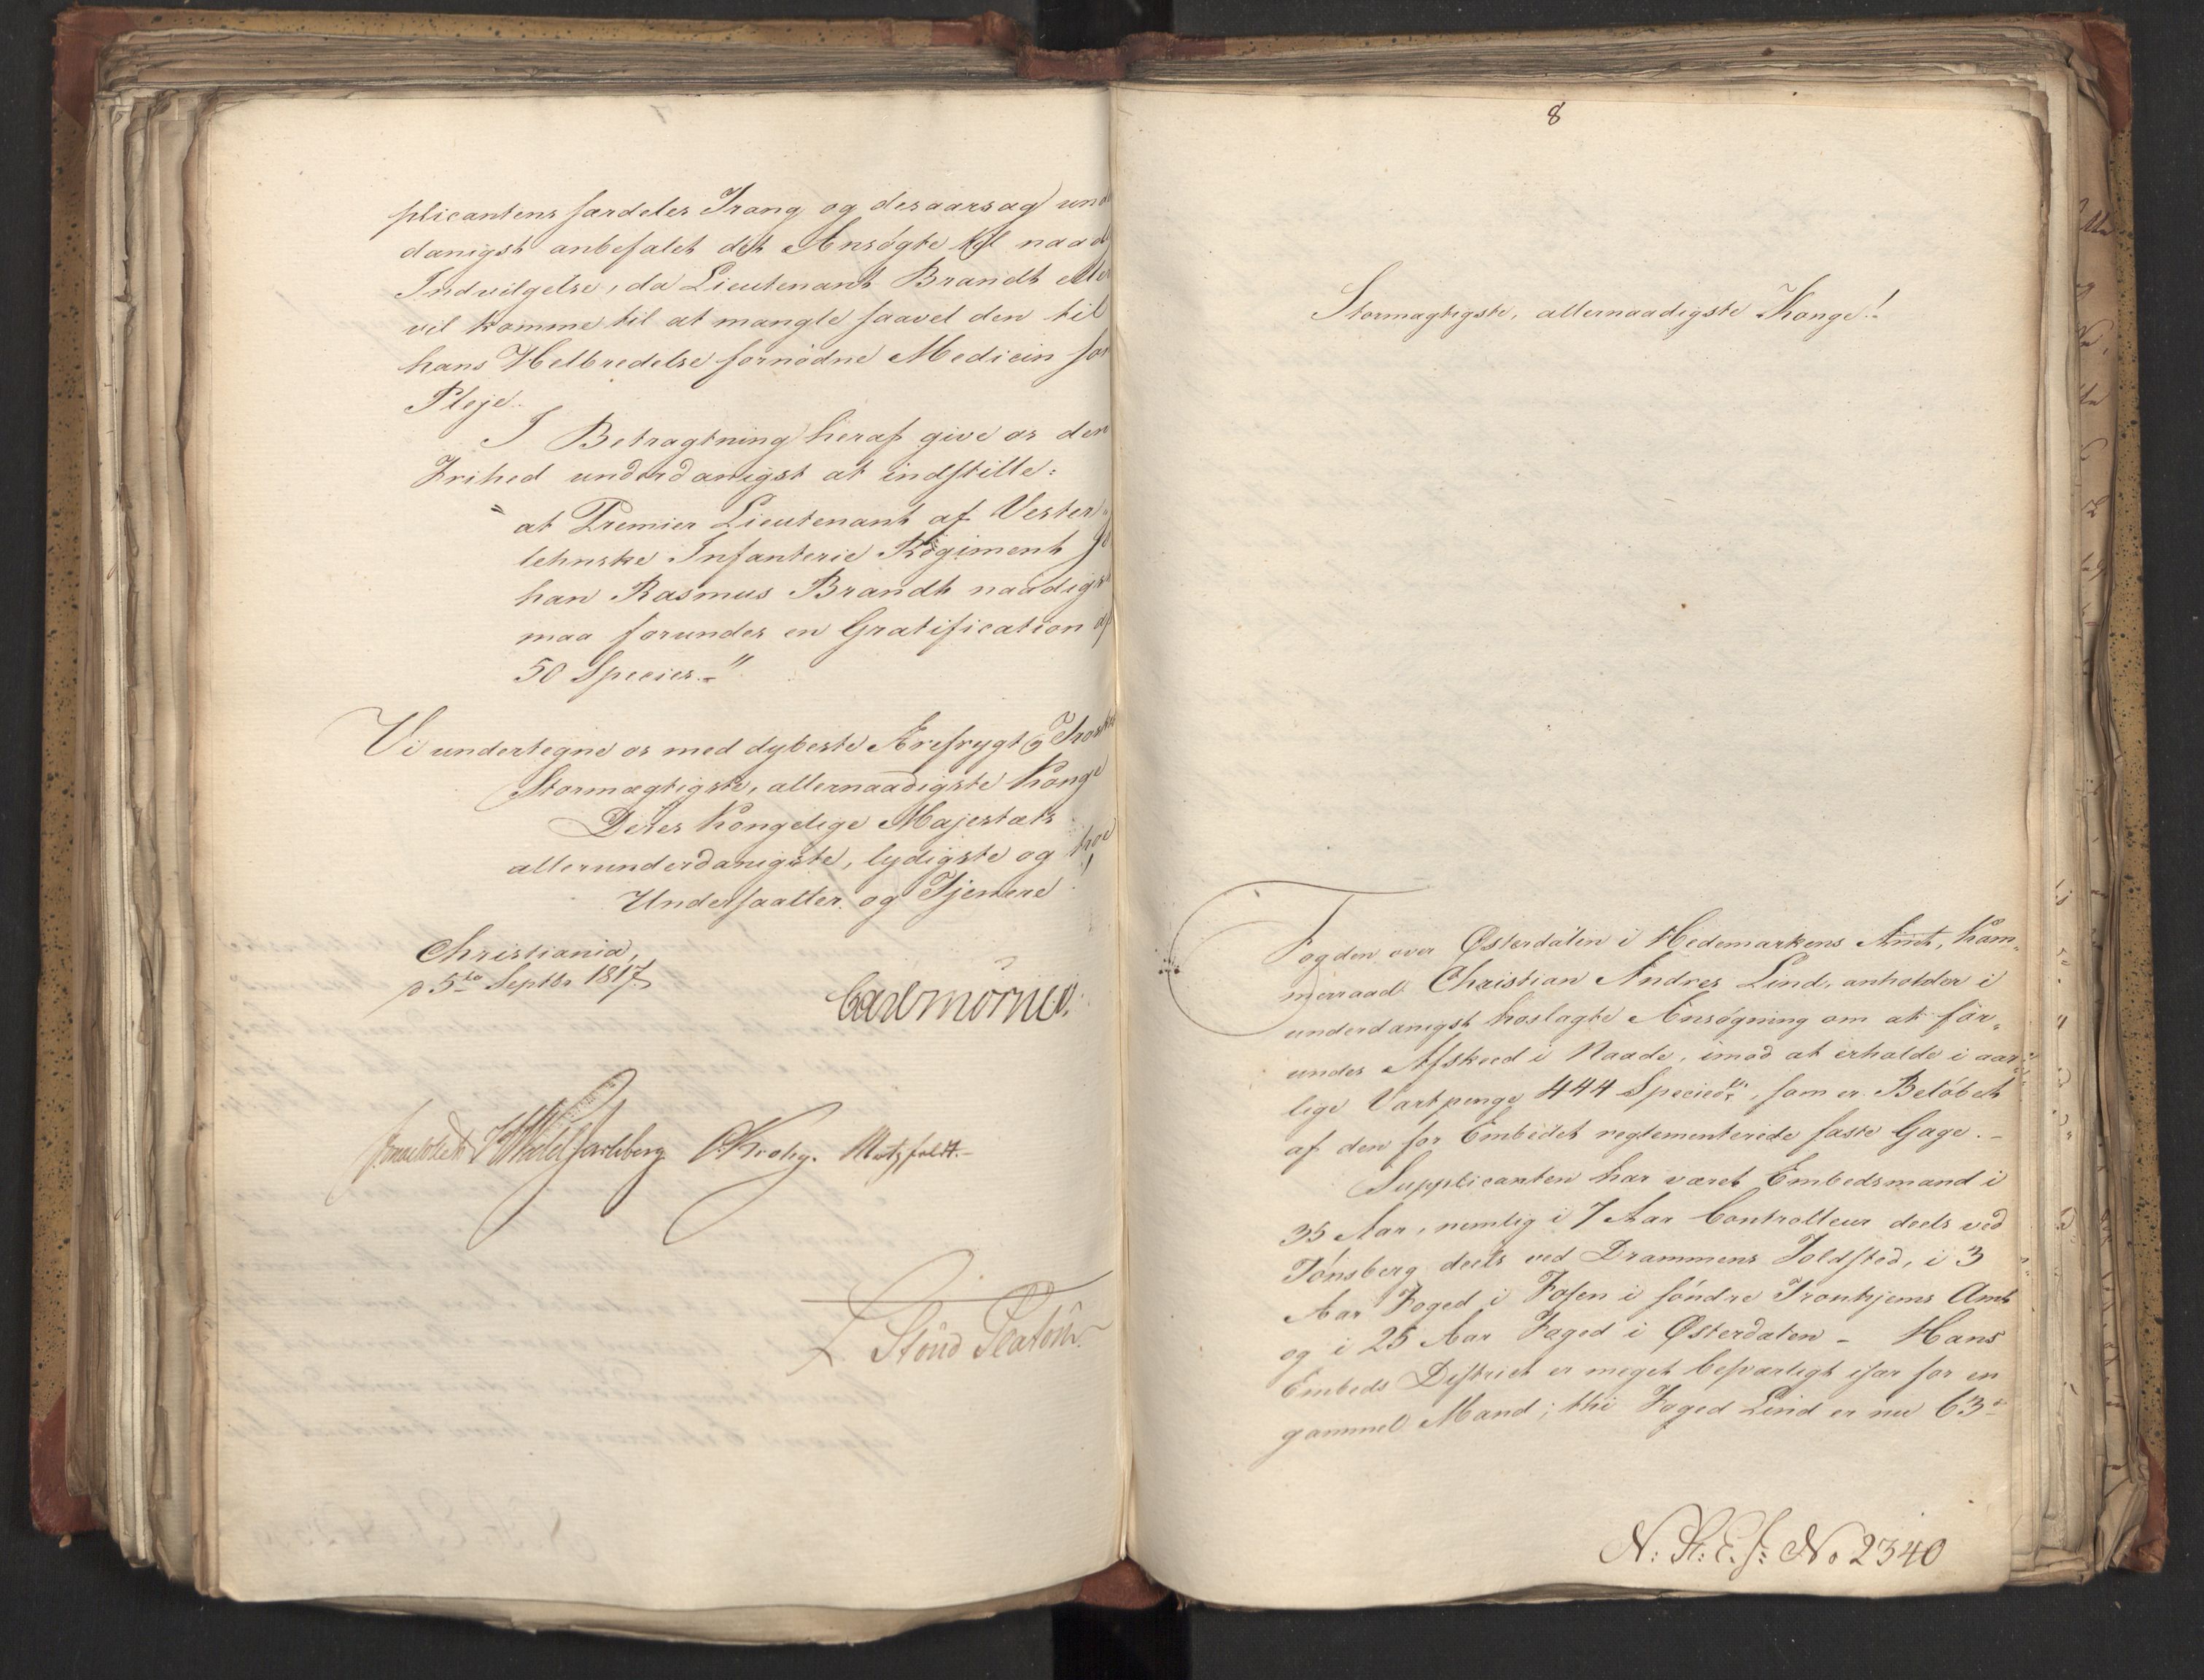 plicantens særdeles Trang og desaarsag und
danigst anbefalet det Ansøgte til naad
Indvilgelse, da Lieutenant Brandt eller
vil komme til at mangle saavel den til
hans Helbredelse fornødne Medicin som
Pleje.
I Betragtning heraf give os den
Frihed underdanigst at indstille:
"at Premier Lieutenant af Vester
lehnske Infanterie Regiment Jo
han Rasmus Brandt naadigst
maa forundes en Gratification af
50 Species."
Vi undertegne os med dybeste Ærefrygt og Troskab
Stormægtigste, allernaadigste Konge
Deres Kongelige Majestæts
allerunderdanigste, lydigste og troe
Undersaatter og Tjenere
Christiania,
d 5te Septbr 1817
Carl Mörner.
Sommerhielm Wedel Jarlsberg C. Krohg. Motzfeldt.
L. Stoud Platou
8
Stormægtigste, allernaadigste Konge!
Fogden over Østerdalen i Hedemarkens Amt, Kam-
merraad Christian Andres Lind, anholder i
underdanigst hoslagte Ansøgning om at for-
undes Afskeed i Naade, imod at erholde i aar-
lige Vartpenge 444 Speciedr, som er Beløbet
af den for Embedet reglementerede faste Gage. -
Supplicanten har været Embedsmand i
35 Aar, nemlig i 7 Aar Controlleur deels ved
Tønsberg deels ved Drammens Toldsted, i 3
Aar Foged i Fosen i søndre Tronhjems Amt
og i 25 Aar Foged i Østerdalen - Hans
Embeds District er meget besværligt især for en
gammel Mand; thi Foged Lind er nu 63
N: R: E. J: No 2340